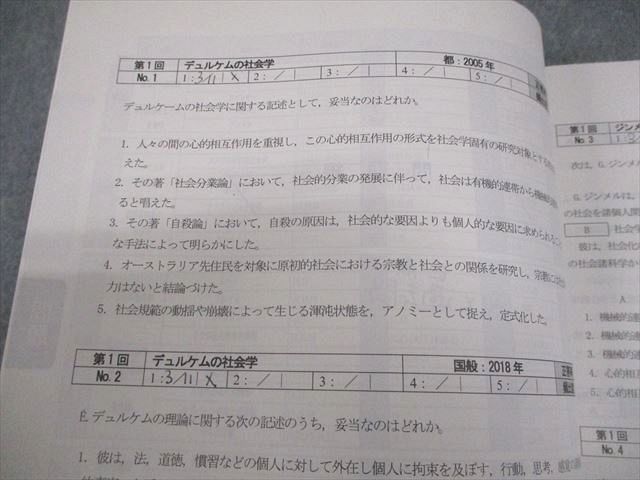 第1回 デュルケムの社会学 都：2005年
No.1 1:3/11 × 2: / 3: / 4: / 5: /
デュルケームの社会学に関する記述として，妥当なのはどれか。
1. 人々の間の心的相互作用を重視し，この心的相互作用の形式を社会学固有の研究対象と
えた。
2. その著「社会分業論」において，社会的分業の発展に伴って，社会は有機的連帯から機械的
と唱えた。
3. その著「自殺論」において，自殺の原因は，社会的な要因よりも個人的な要因に求められる
な手法によって明らかにした。
4. オーストラリア先住民を対象に原初的社会における宗教と社会との関係を研究し，宗教に
力はないと結論づけた。
5. 社会規範の動揺や崩壊によって生じる渾沌状態を，アノミーとして捉え，定式化した。
第1回 デュルケムの社会学 国般：2018年
No.2 1:3/11 × 2: / 3: / 4: / 5: /
E. デュルケムの理論に関する次の記述のうち，妥当なのはどれか。
1. 彼は，法，道徳，慣習などの個人に対して外在し個人に拘束を及ぼす，行動，思考，感覚の
第1回 ジンメ
No.3 1:3/
次は，G.ジンメル
G.ジンメルは，
の社会を諸個人間
B 社会学
彼は，社会化
の社会諸科学か
A
1. 機械的連
2. 機械的連
3. 機械的
4. 心的相互
5. 心的相互
第1回
No.4